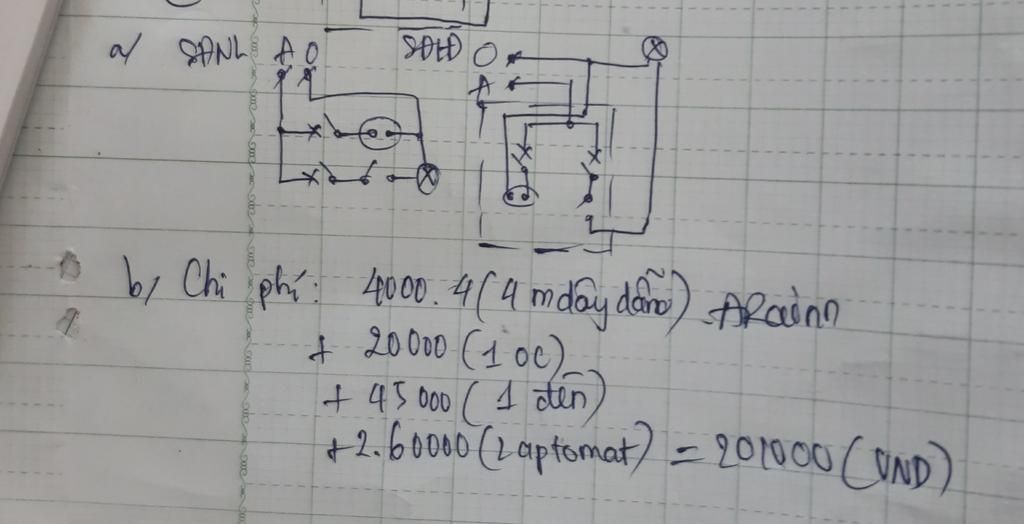 a/ SĐNL A O SĐLĐ O
A
b, Chi phí: 4000.4 (4 m dây dẫn)
+ 20000 (1 oc)
+ 45000 (1 đèn)
+ 2.60000 (2 aptomat) = 201000 (VND)